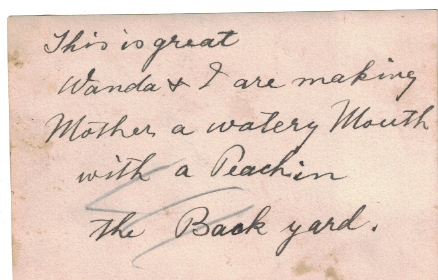 This is great
Wanda & I are making
Mother a watery Mouth
with a Peach in
the Back yard.